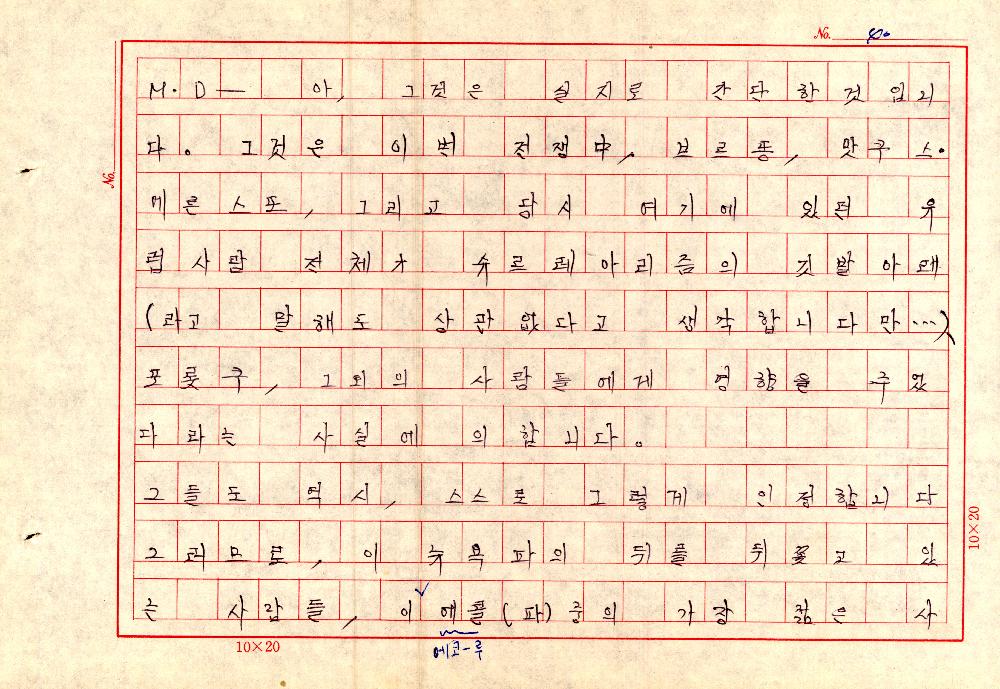 No. 40
M·D— 아, 그것은 실지로 간단한 것입니
다. 그것은 이번 전쟁中, 브르똥, 맛구스·
에른스또, 그리고 당시 여기에 있던 유
럽사람 전체가 슈르레아리즘의 깃발아래
(라고 말해도 상관없다고 생각합니다만…)
포롯구, 그외의 사람들에게 영향을 주었
다 라는 사실에 의합니다.
그들도 역시, 스스로 그렇게 인정합니다
그러므로, 이 뉴욕파의 뒤를 뒤쫓고 있
는 사람들, 이 에콜(파)중의 가장 젊은 사
에코-루
No.
10×20
10×20